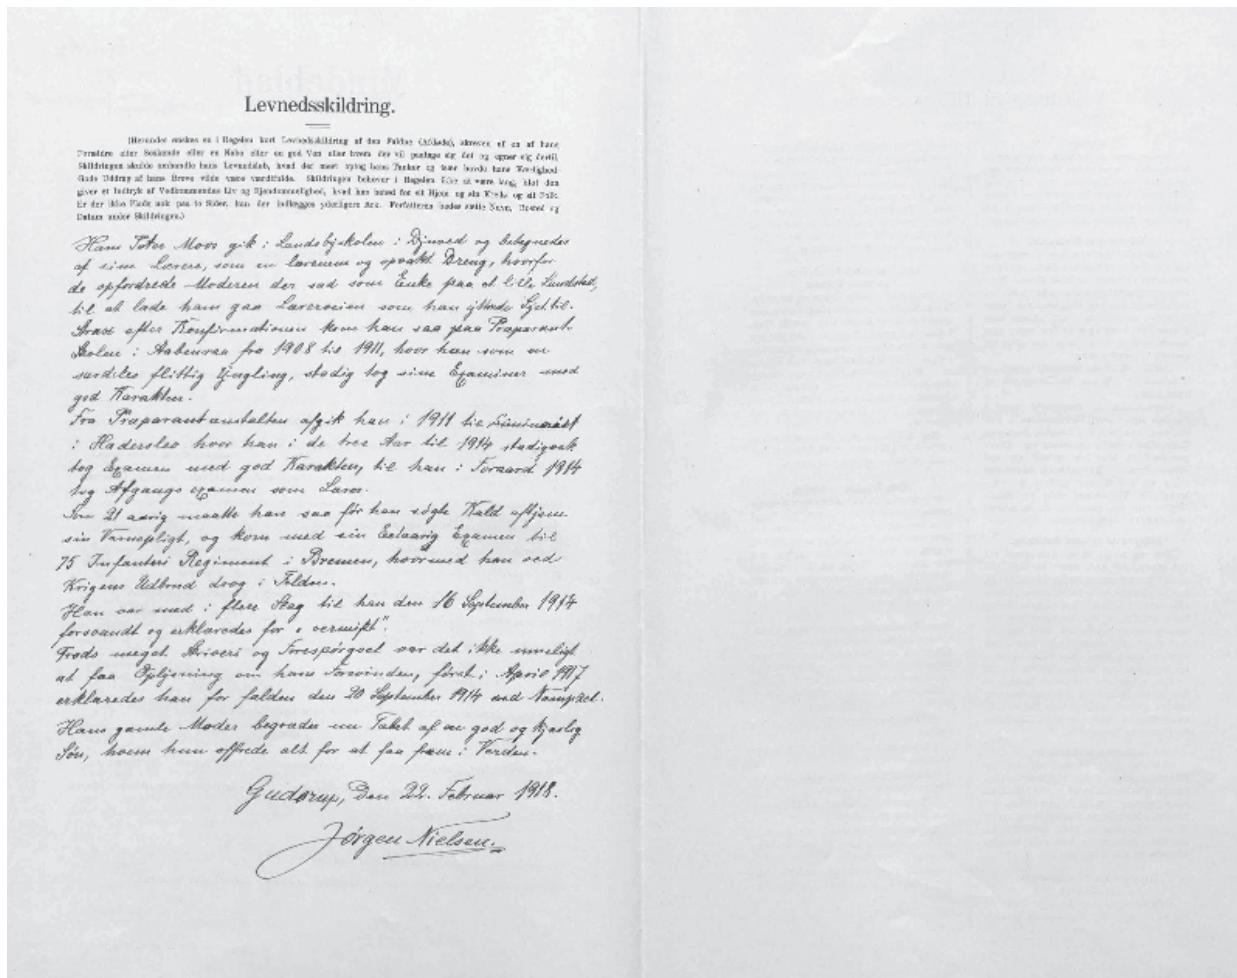 Levnedsskildring.
(Herunder ønskes en i Regelen kort Levnedsskildring af den Faldne (Afdøde), skreven af en af hans
Forældre eller Søskende eller en Nabo eller en god Ven eller hvem der vil paatage sig det og egner sig dertil.
Skildringen skulde omhandle hans Levnedsløb, hvad der mest optog hans Tanker og især havde hans Kærlighed.
Gode Uddrag af hans Breve vilde være værdifulde. Skildringen behøver i Regelen ikke at være lang, blot den
giver et Indtryk af Vedkommendes Liv og Ejendommelighed, hvad han betød for sit Hjem og sin Kreds og sit Folk.
Er der ikke Plads nok paa to Sider, kan der indlægges yderligere Ark. Forfatteren bedes sætte Navn, Bosted og
Datum under Skildringen.)
Hans Peter Moos gik i Landsbyskolen i Djnved og betegnedes
af sine Lærere, som en lærenem og opvakt Dreng, hvorfor
de opfordrede Moderen der sad som Enke paa et lille Landsted,
til at lade ham gaa Lærerveien som han ytrede Lyst til.
Strax efter Konfirmationen kom han saa paa Præparant-
skolen i Aabenraa fra 1908 til 1911, hvor han som en
særdeles flittig Yngling, stadig tog sine Examiner med
god Karakter.
Fra Præparantanstalten afgik han i 1911 til Seminariet
i Haderslev hvor han i de tree Aar til 1914 stadigvæk
tog Examen med god Karakter, til han i Foraard 1914
tog Afgangsexamen som Lærer.
Som 21 aarig maatte han saa før han søgte Kald aftjene
sin Værnepligt, og kom med sin Eetaarig Examen til
75 Infanteri Regiment i Bremen, hvormed han ved
Krigens Udbrud drog i Felden.
Han var med i flere Slag til han den 16 September 1914
forsvandt og erklæredes for „vermißt".
Trods meget Skriveri og Forespørgsel var det ikke mueligt
at faa Oplysning om hans Forsvinden, først i April 1917
erklæredes han for falden den 20 September 1914 ved Nampcel.
Hans gamle Moder begræder nu Tabet af en god og kjærlig
Søn, hvem hun offrede alt for at faa frem i Verden.
Guderup, Den 22. Februar 1918.
Jørgen Nielsen.